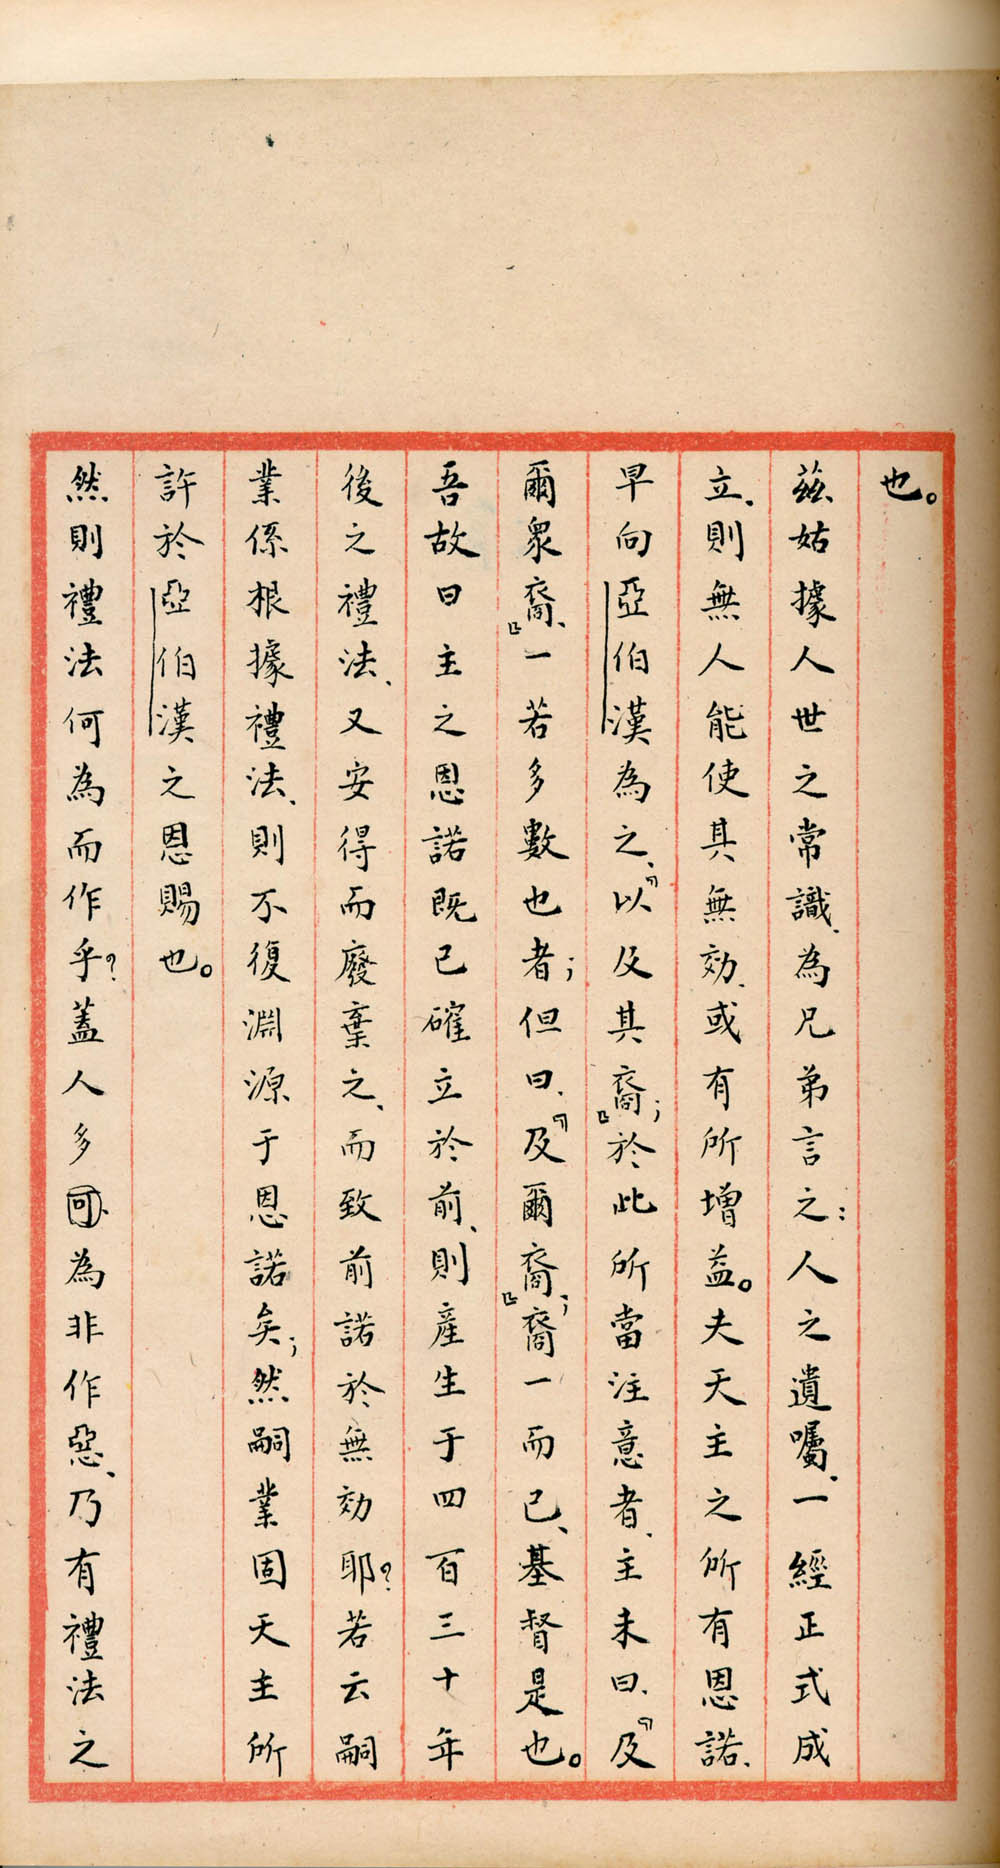 也。
茲姑據人世之常識、為兄弟言之：人之遺囑、一經正式成
立、則無人能使其無効、或有所增益。夫天主之所有恩諾、
早向亞伯漢為之、『以及其裔』；於此所當注意者、主未曰、『及
爾眾裔』、一若多數也者；但曰、『及爾裔』；裔一而已、基督是也。
吾故曰主之恩諾既已確立於前、則產生于四百三十年
後之禮法、又安得而廢棄之、而致前諾於無効耶？若云嗣
業係根據禮法、則不復淵源于恩諾矣；然嗣業固天主所
許於亞伯漢之恩賜也。
然則禮法何為而作乎？蓋人多可為非作惡、乃有禮法之